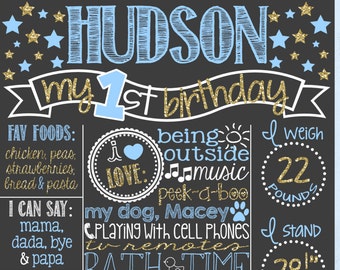 HUDSON
my 1st birthday
FAV FOODS:
chicken, peas,
strawberries,
bread & pasta
I CAN SAY:
mama,
dada, bye
& papa
i
LOVE:
being
outside
music
peek-a-boo
my dog, Macey
PLAYING WITH CELL PHONES
tv remotes
BATH TIME
I WEIGH
22
POUNDS
I STAND
28"